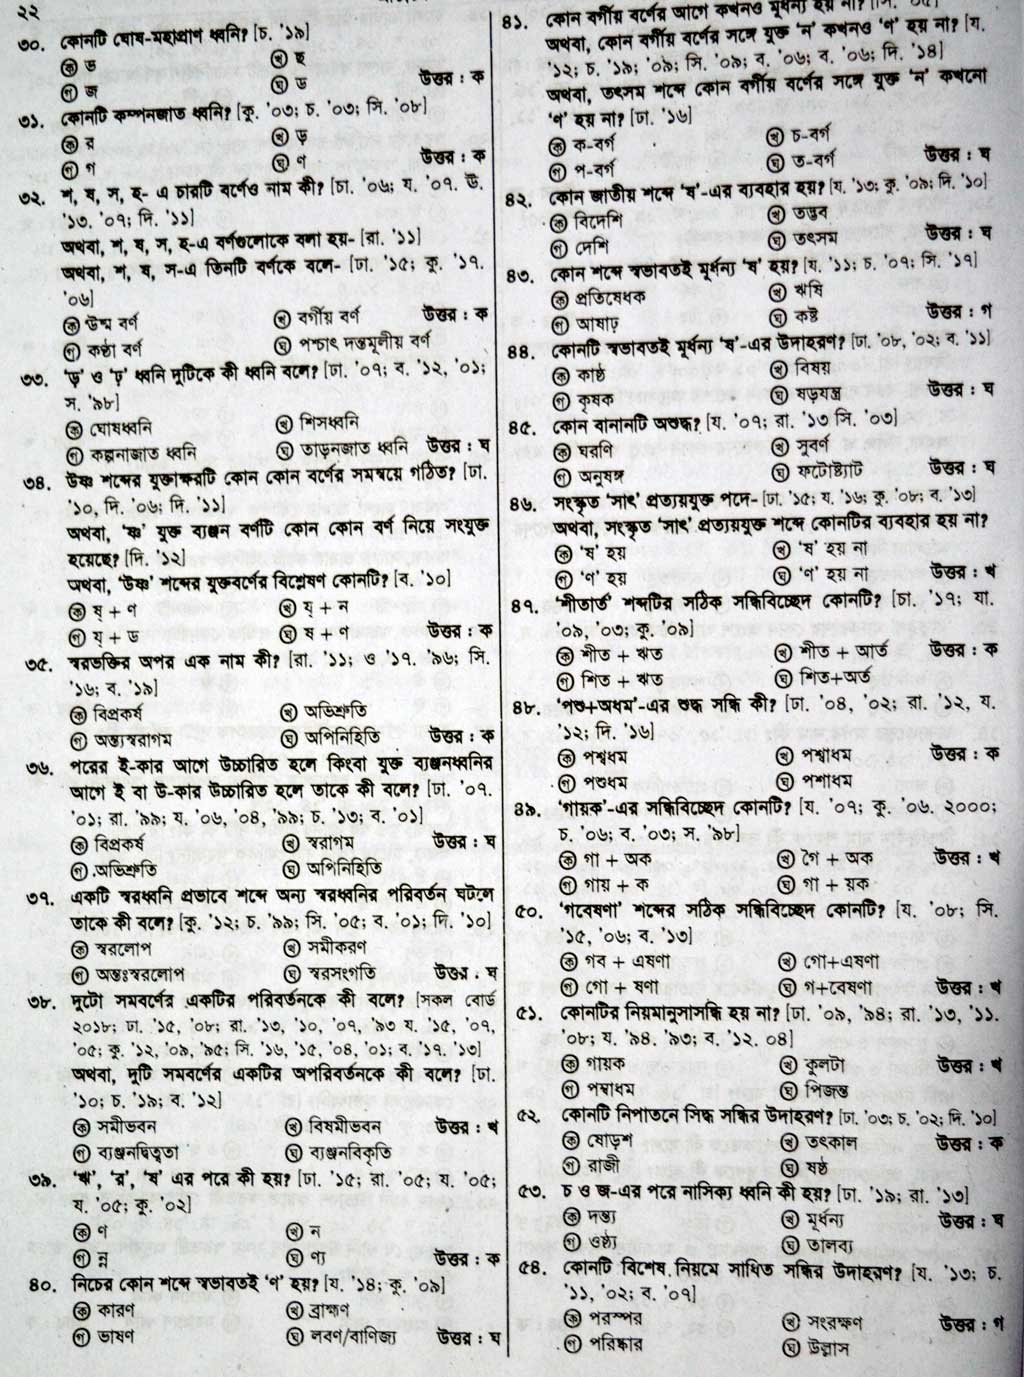 ২২
৩০. কোনটি ঘোষ-মহাপ্রাণ ধ্বনি? [চ. '১৯]
ক ভ খ ছ
গ জ ঘ ড উত্তর : ক
৩১. কোনটি কম্পনজাত ধ্বনি? [কু. '০৩; চ. '০৩; সি. '০৮]
ক র খ ড়
গ গ ঘ ণ উত্তর : ক
৩২. শ, ষ, স, হ- এ চারটি বর্ণেও নাম কী? [চা. '০৬; য. '০৭. উ.
'১৩. '০৭; দি. '১১]
অথবা, শ, ষ, স, হ-এ বর্ণগুলোকে বলা হয়- [রা. '১১]
অথবা, শ, ষ, স-এ তিনটি বর্ণকে বলে- [ঢা. '১৫; কু. '১৭.
'০৬]
ক উষ্ম বর্ণ খ বর্গীয় বর্ণ উত্তর : ক
গ কণ্ঠ্য বর্ণ ঘ পশ্চাৎ দন্তমূলীয় বর্ণ
৩৩. 'ড়' ও 'ঢ়' ধ্বনি দুটিকে কী ধ্বনি বলে? [ঢা. '০৭; ব. '১২, '০১;
স. '৯৮]
ক ঘোষধ্বনি খ শিসধ্বনি
গ কম্পনাজাত ধ্বনি ঘ তাড়নজাত ধ্বনি উত্তর : ঘ
৩৪. উষ্ণ শব্দের যুক্তাক্ষরটি কোন কোন বর্ণের সমন্বয়ে গঠিত? [ঢা.
'১০, দি. '০৬; দি. '১১]
অথবা, 'ষ্ণ' যুক্ত ব্যঞ্জন বর্ণটি কোন কোন বর্ণ নিয়ে সংযুক্ত
হয়েছে? [দি. '১২]
অথবা, 'উষ্ণ' শব্দের যুক্তবর্ণের বিশ্লেষণ কোনটি? [ব. '১০]
ক ষ্ + ণ খ য্ + ন
গ য্ + ড ঘ ষ + ণ উত্তর : ক
৩৫. স্বরভক্তির অপর এক নাম কী? [রা. '১১; ও '১৭. '৯৬; সি.
'১৬; ব. '১৯]
ক বিপ্রকর্ষ খ অভিশ্রুতি
গ অন্ত্যস্বরাগম ঘ অপিনিহিতি উত্তর : ক
৩৬. পরের ই-কার আগে উচ্চারিত হলে কিংবা যুক্ত ব্যঞ্জনধ্বনির
আগে ই বা উ-কার উচ্চারিত হলে তাকে কী বলে? [ঢা. '০৭.
'০১; রা. '৯৯; য. '০৬, '০৪, '৯৯; চ. '১৩; ব. '০১]
ক বিপ্রকর্ষ খ স্বরাগম উত্তর : ঘ
গ অভিশ্রুতি ঘ অপিনিহিতি
৩৭. একটি স্বরধ্বনি প্রভাবে শব্দে অন্য স্বরধ্বনির পরিবর্তন ঘটলে
তাকে কী বলে? [কু. '১২; চ. '৯৯; সি. '০৫; ব. '০১; দি. '১০]
ক স্বরলোপ খ সমীকরণ
গ অন্তঃস্বরলোপ ঘ স্বরসংগতি উত্তর : ঘ
৩৮. দুটো সমবর্ণের একটির পরিবর্তনকে কী বলে? [সকল বোর্ড
২০১৮; ঢা. '১৫, '০৮; রা. '১৩, '১০, '০৭, '৯৩ য. '১৫, '০৭,
'০৫; কু. '১২, '০৯, '৯৫; সি. '১৬, '১৫, '০৪, '০১; ব. '১৭. '১৩]
অথবা, দুটি সমবর্ণের একটির অপরিবর্তনকে কী বলে? [ঢা.
'১০; চ. '১৯; ব. '১২]
ক সমীভবন খ বিষমীভবন উত্তর : খ
গ ব্যঞ্জনদ্বিত্বতা ঘ ব্যঞ্জনবিকৃতি
৩৯. 'ঋ', 'র', 'ষ' এর পরে কী হয়? [ঢা. '১৫; রা. '০৫; য. '০৫;
য. '০৫; কু. '০২]
ক ণ খ ন
গ ন্ন ঘ ণ্য উত্তর : ক
৪০. নিচের কোন শব্দে স্বভাবতই 'ণ' হয়? [য. '১৪; কু. '০৯]
ক কারণ খ ব্রাহ্মণ
গ ভাষণ ঘ লবণ/বাণিজ্য উত্তর : ঘ
৪১. কোন বর্গীয় বর্ণের আগে কখনও মূর্ধন্য হয় না?
অথবা, কোন বর্গীয় বর্ণের সঙ্গে যুক্ত 'ন' কখনও 'ণ' হয় না? [য.
'১২; চ. '১৯; '০৯; সি. '০৯; ব. '০৬; ব. '০৬; দি. '১৪]
অথবা, তৎসম শব্দে কোন বর্গীয় বর্ণের সঙ্গে যুক্ত 'ন' কখনো
'ণ' হয় না? [ঢা. '১৬]
ক ক-বর্গ খ চ-বর্গ
গ প-বর্গ ঘ ত-বর্গ উত্তর : ঘ
৪২. কোন জাতীয় শব্দে 'ষ'-এর ব্যবহার হয়? [য. '১৩; কু. '০৯; দি. '১০]
ক বিদেশি খ তদ্ভব
গ দেশি ঘ তৎসম উত্তর : ঘ
৪৩. কোন শব্দে স্বভাবতই মূর্ধন্য 'ষ' হয়? [য. '১১; চ. '০৭; সি. '১৭]
ক প্রতিষেধক খ ঋষি
গ আষাঢ় ঘ কষ্ট উত্তর : গ
৪৪. কোনটি স্বভাবতই মূর্ধন্য 'ষ'-এর উদাহরণ? [ঢা. '০৮, '০২; ব. '১১]
ক কাষ্ঠ খ বিষয়
গ কৃষক ঘ ষড়যন্ত্র উত্তর : ঘ
৪৫. কোন বানানটি অশুদ্ধ? [য. '০৭; রা. '১৩ সি. '০৩]
ক ঘরণি খ সুবর্ণ
গ অনুষঙ্গ ঘ ফটোষ্ট্যাট উত্তর : ঘ
৪৬. সংস্কৃত 'সাৎ' প্রত্যয়যুক্ত পদে- [ঢা. '১৫; য. '১৬; কু. '০৮; ব. '১৩]
অথবা, সংস্কৃত 'সাৎ' প্রত্যয়যুক্ত শব্দে কোনটির ব্যবহার হয় না?
ক 'ষ' হয় খ 'ষ' হয় না
গ 'ণ' হয় ঘ 'ণ' হয় না উত্তর : খ
৪৭. 'শীতার্ত' শব্দটির সঠিক সন্ধিবিচ্ছেদ কোনটি? [চা. '১৭; যা.
'০৯, '০৩; কু. '০৯]
ক শীত + ঋত খ শীত + আর্ত উত্তর : ক
গ শিত + ঋত ঘ শিত+অর্ত
৪৮. 'পশু+অধম'-এর শুদ্ধ সন্ধি কী? [ঢা. '০৪, '০২; রা. '১২, য.
'১২; দি. '১৬]
ক পশ্বধম খ পশ্বাধম উত্তর : ক
গ পশুধম ঘ পশাধম
৪৯. 'গায়ক'-এর সন্ধিবিচ্ছেদ কোনটি? [য. '০৭; কু. '০৬. ২০০০;
চ. '০৬; ব. '০৩; স. '৯৮]
ক গা + অক খ গৈ + অক উত্তর : খ
গ গায় + ক ঘ গা + য়ক
৫০. 'গবেষণা' শব্দের সঠিক সন্ধিবিচ্ছেদ কোনটি? [য. '০৮; সি.
'১৫, '০৬; ব. '১৩]
ক গব + এষণা খ গো+এষণা
গ গো + ষণা ঘ গ+বেষণা উত্তর : খ
৫১. কোনটির নিয়মানুসাসন্ধি হয় না? [ঢা. '০৯, '৯৪; রা. '১৩, '১১.
'০৮; য. '৯৪. '৯৩; ব. '১২. ০৪]
ক গায়ক খ কুলটা উত্তর : খ
গ পশ্বাধম ঘ পিজন্ত
৫২. কোনটি নিপাতনে সিদ্ধ সন্ধির উদাহরণ? [ঢা. '০৩; চ. '০২; দি. '১০]
ক ষোড়শ খ তৎকাল উত্তর : ক
গ রাজ্ঞী ঘ ষষ্ঠ
৫৩. চ ও জ-এর পরে নাসিক্য ধ্বনি কী হয়? [ঢা. '১৯; রা. '১৩]
ক দন্ত্য খ মূর্ধন্য উত্তর : ঘ
গ ওষ্ঠ্য ঘ তালব্য
৫৪. কোনটি বিশেষ নিয়মে সাধিত সন্ধির উদাহরণ? [য. '১৩; চ.
'১১, '০২; ব. '০৭]
ক পরস্পর খ সংরক্ষণ উত্তর : গ
গ পরিষ্কার ঘ উল্লাস